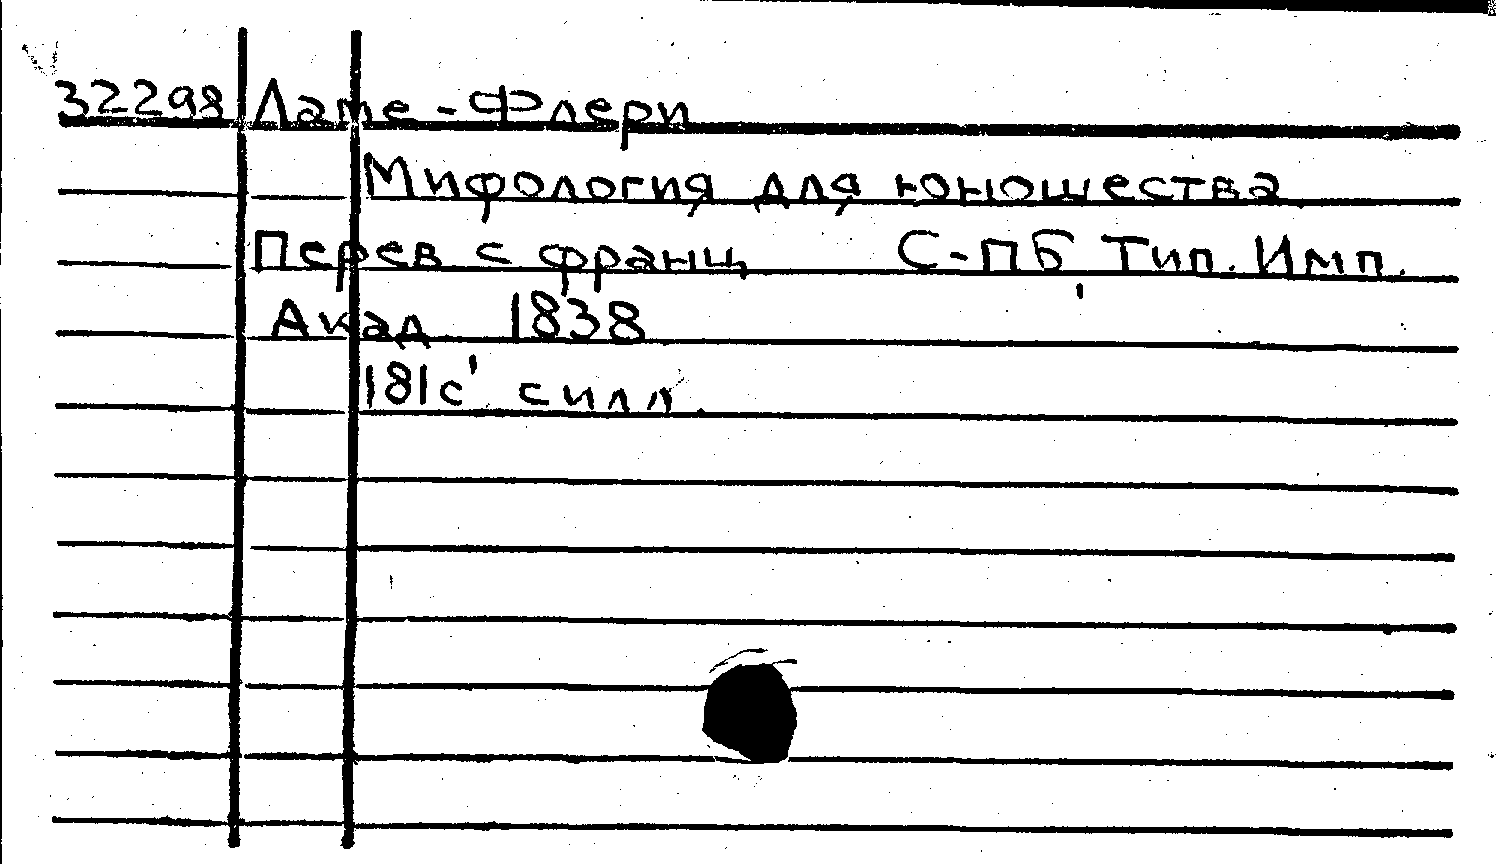 32298 Ламе-Флери
Мифология для юношества
Перев с франц С-ПБ Тип. Имп.
Акад 1838
181с' силл.